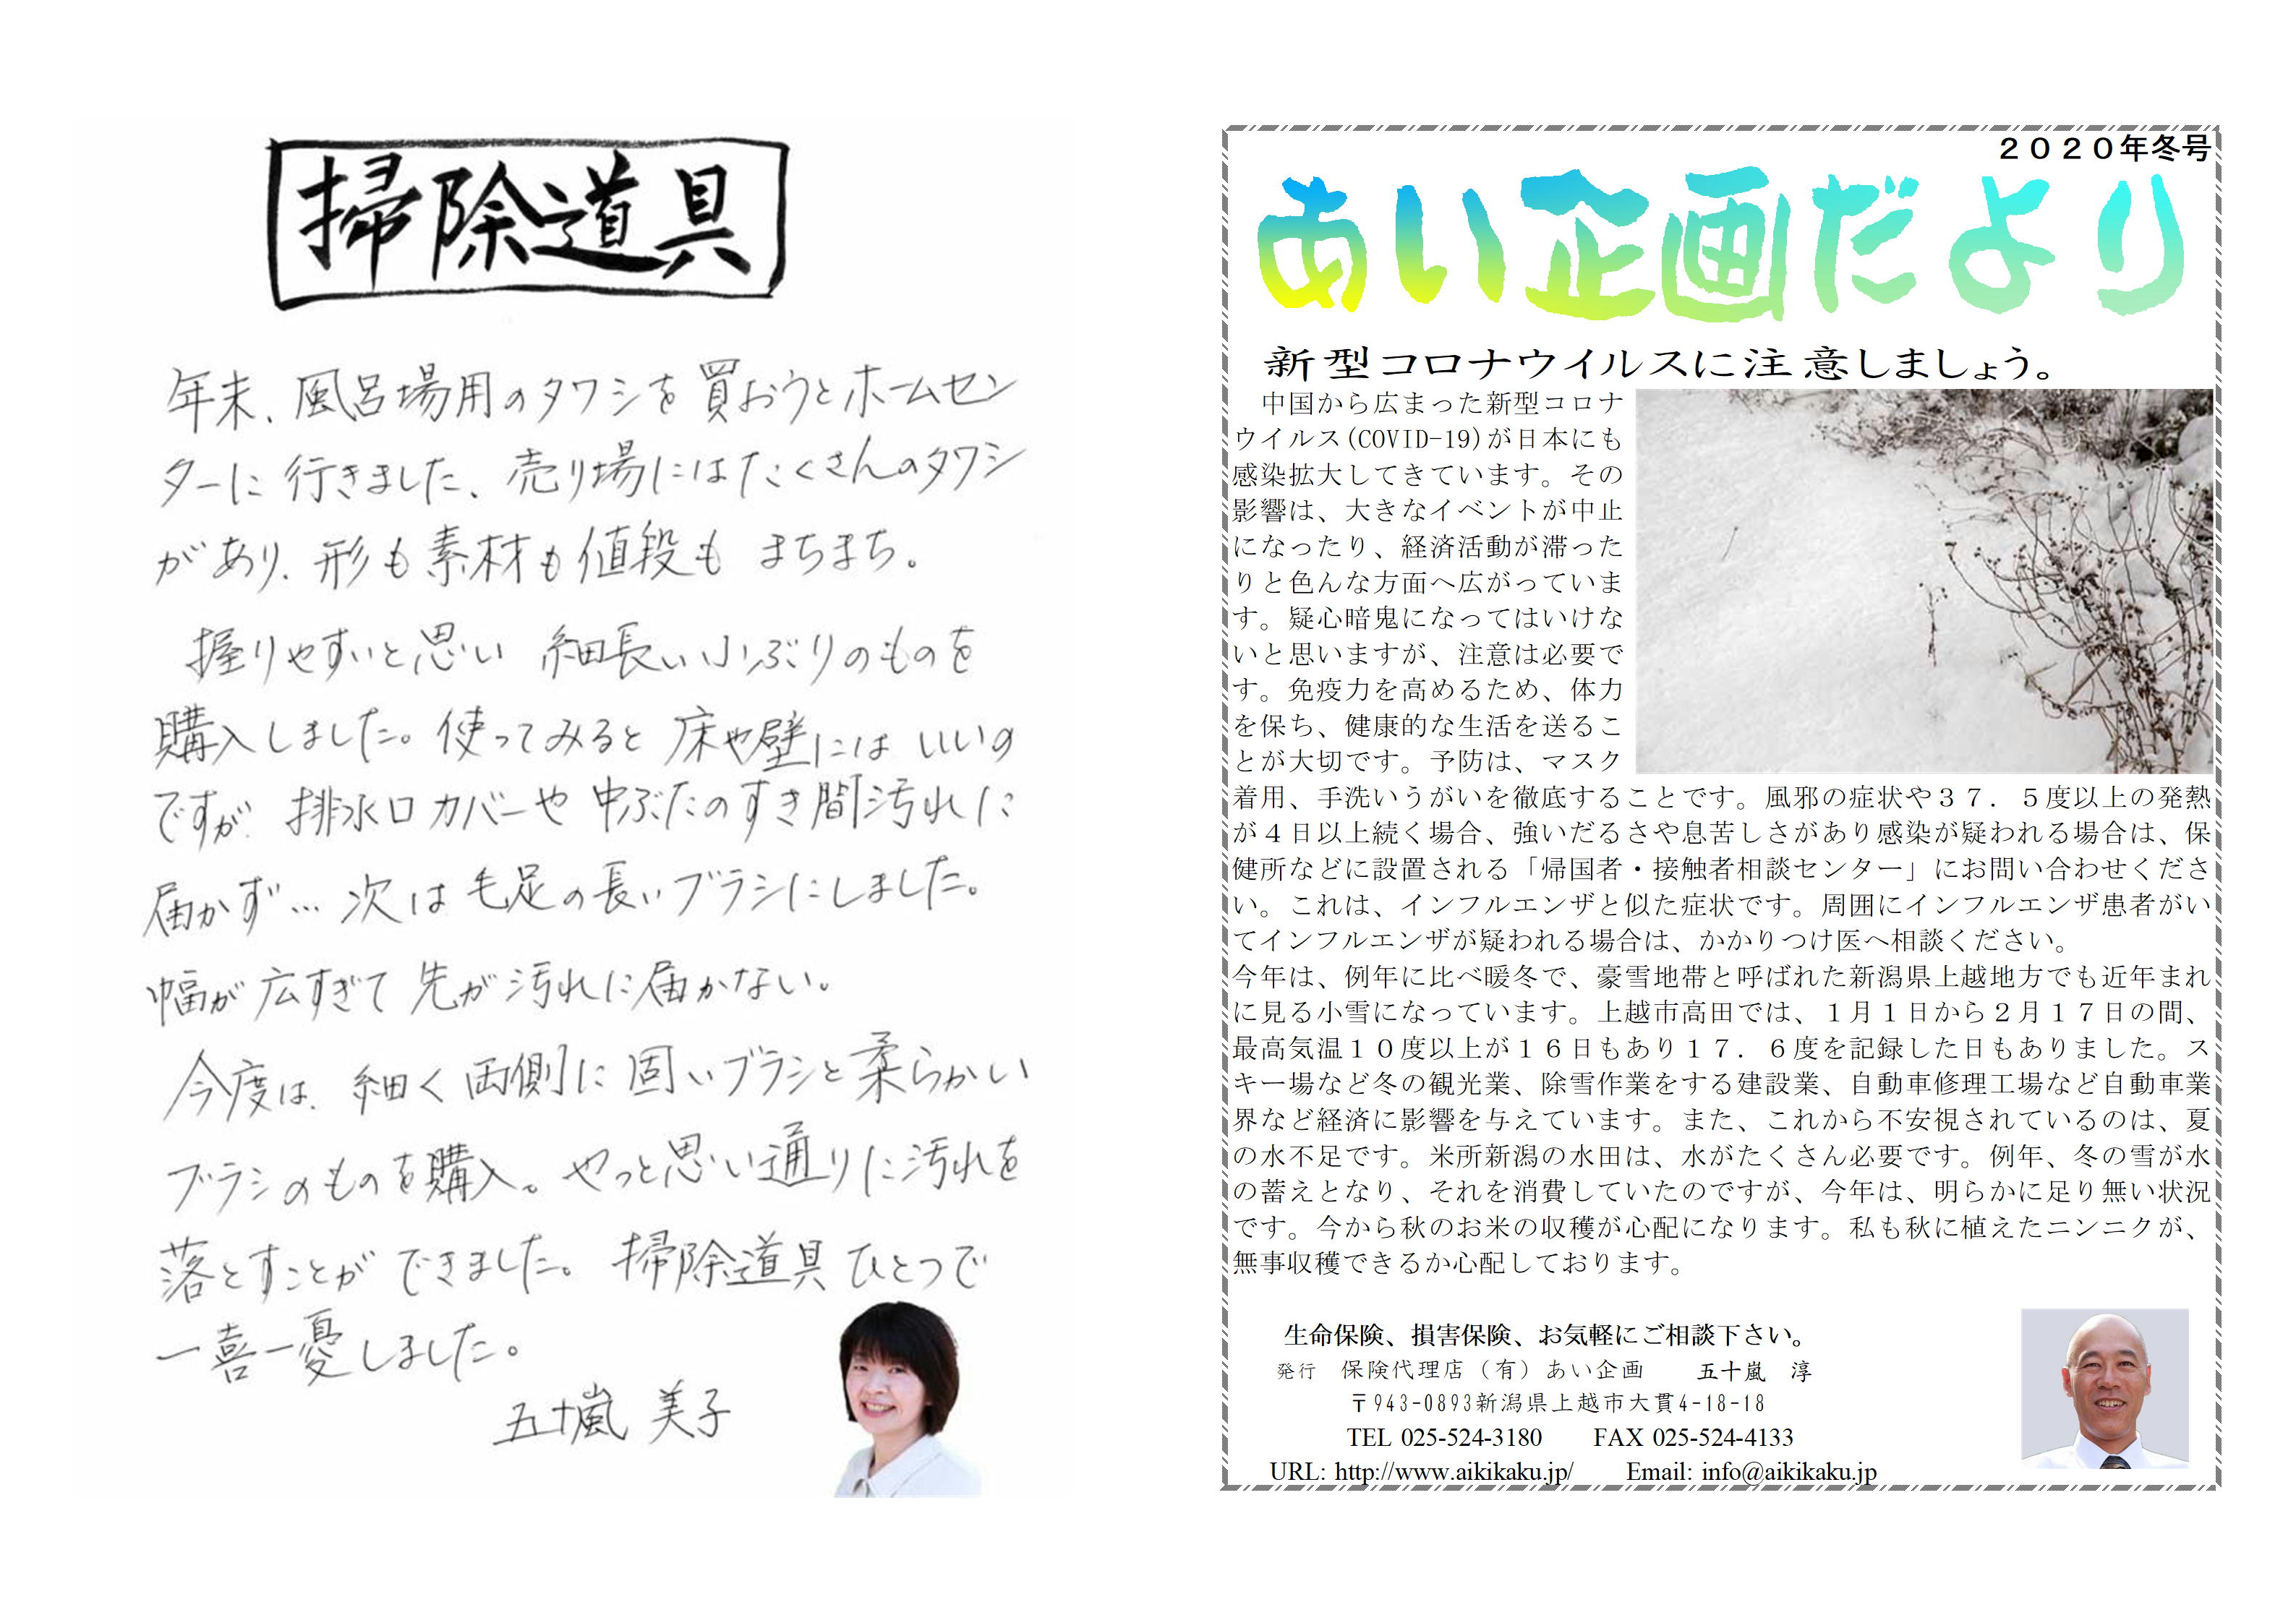 掃除道具
年末、風呂場用のタワシを買おうとホームセン
ターに行きました、売り場にはたくさんのタワシ
があり、形も素材も値段もまちまち。
握りやすいと思い 細長い小ぶりのものを
購入しました。使ってみると床や壁にはいいの
ですが、排水口カバーや中ぶたのすき間汚れに
届かず…次は毛足の長いブラシにしました。
幅が広すぎて先が汚れに届かない。
今度は、細く両側に固いブラシと柔らかい
ブラシのものを購入。やっと思い通りに汚れを
落とすことができました。掃除道具ひとつで
一喜一憂しました。
五十嵐 美子
２０２０年冬号
あい企画だより
新型コロナウイルスに注意しましょう。
中国から広まった新型コロナ
ウイルス(COVID-19)が日本にも
感染拡大してきています。その
影響は、大きなイベントが中止
になったり、経済活動が滞った
りと色んな方面へ広がっていま
す。疑心暗鬼になってはいけな
いと思いますが、注意は必要で
す。免疫力を高めるため、体力
を保ち、健康的な生活を送るこ
とが大切です。予防は、マスク
着用、手洗いうがいを徹底することです。風邪の症状や３７．５度以上の発熱
が４日以上続く場合、強いだるさや息苦しさがあり感染が疑われる場合は、保
健所などに設置される「帰国者・接触者相談センター」にお問い合わせくださ
い。これは、インフルエンザと似た症状です。周囲にインフルエンザ患者がい
てインフルエンザが疑われる場合は、かかりつけ医へ相談ください。
今年は、例年に比べ暖冬で、豪雪地帯と呼ばれた新潟県上越地方でも近年まれ
に見る小雪になっています。上越市高田では、１月１日から２月１７日の間、
最高気温１０度以上が１６日もあり１７．６度を記録した日もありました。ス
キー場など冬の観光業、除雪作業をする建設業、自動車修理工場など自動車業
界など経済に影響を与えています。また、これから不安視されているのは、夏
の水不足です。米所新潟の水田は、水がたくさん必要です。例年、冬の雪が水
の蓄えとなり、それを消費していたのですが、今年は、明らかに足り無い状況
です。今から秋のお米の収穫が心配になります。私も秋に植えたニンニクが、
無事収穫できるか心配しております。
生命保険、損害保険、お気軽にご相談下さい。
発行 保険代理店（有）あい企画 五十嵐 淳
〒943-0893新潟県上越市大貫4-18-18
TEL 025-524-3180 FAX 025-524-4133
URL: http://www.aikikaku.jp/ Email: info@aikikaku.jp